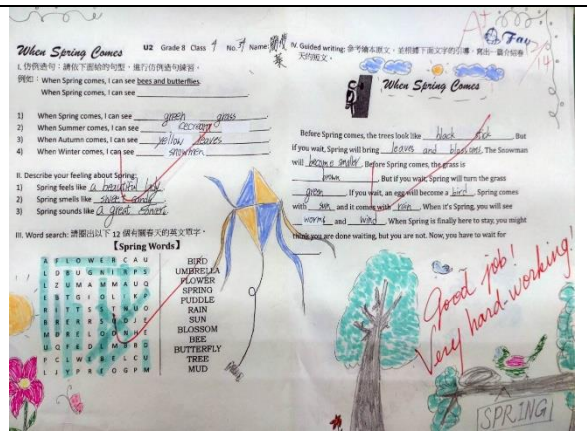 When Spring Comes U2 Grade 8 Class 4 No. 34 Name:
I. 仿例造句：請依下面給的句型，進行仿例造句練習。
例如：When Spring comes, I can see bees and butterflies.
When Spring comes, I can see
1) When Spring comes, I can see green grass.
2) When Summer comes, I can see icecream
3) When Autumn comes, I can see yellow leaves
4) When Winter comes, I can see snowmen
II. Describe your feeling about Spring:
1) Spring feels like a beautiful lady
2) Spring smells like sweet candy
3) Spring sounds like a great concert
III. Word search: 請圈出以下 12 個有關春天的英文單字。
【Spring Words】
BIRD
UMBRELLA
FLOWER
SPRING
PUDDLE
RAIN
SUN
BLOSSOM
BEE
BUTTERFLY
TREE
MUD
IV. Guided writing: 參考繪本原文，並根據下面文字的引導，寫出一篇介紹春天的短文。
When Spring Comes
Before Spring comes, the trees look like black stick. But
if you wait, Spring will bring leaves and blossoms. The Snowman
will become smaller. Before Spring comes, the grass is
brown. But if you wait, Spring will turn the grass
green. If you wait, an egg will become a bird. Spring comes
with sun and it comes with rain. When it's Spring, you will see
worms and wind. When Spring is finally here to stay, you might
think you are done waiting, but you are not. Now, you have to wait for
A+
Fay
Good job!
Very hard working!
SPRING